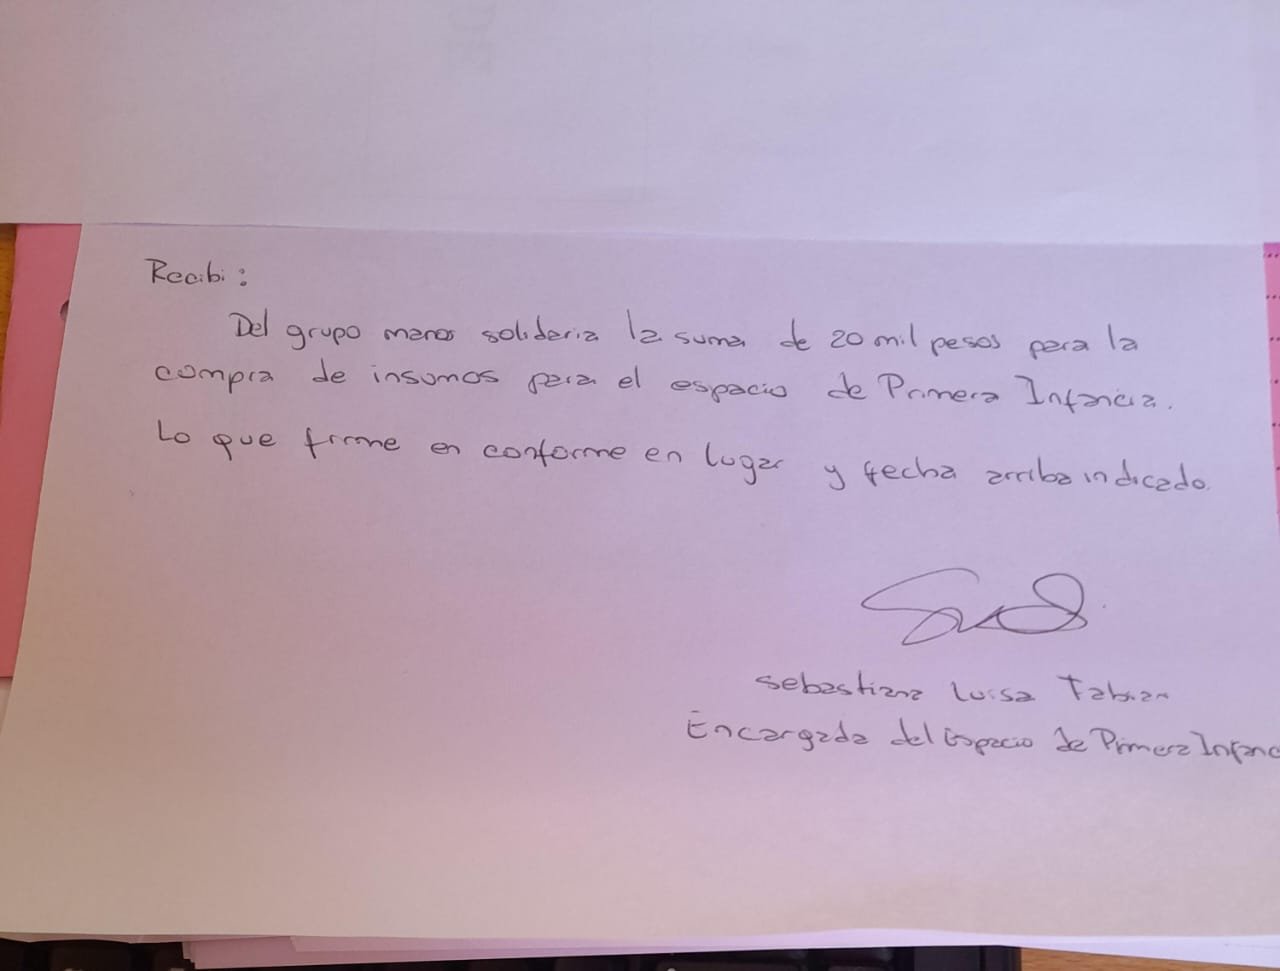 Recibi:
Del grupo manos solidaria la suma de 20 mil pesos para la
compra de insumos para el espacio de Primera Infancia.
Lo que firme en conforme en lugar y fecha arriba indicado.
Sebastiana Luisa Fabian
Encargada del Espacio de Primera Infanc